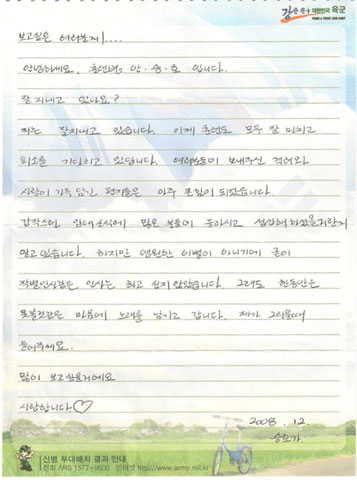 강한 친구 대한민국 육군
보고싶은 여러분께....
안녕하세요, 훈련병 안.승.호 입니다.
잘 지내고 있나요?
저는 잘지내고 있습니다. 이제 훈련도 모두 잘 마치고
퇴소를 기다리고 있답니다. 여러분들이 보내주신 격려와
사랑이 가득 담긴 편지들은 아주 큰힘이 되었습니다.
갑작스런 입대소식에 많은 분들이 놀라시고 섭섭해하셨을거란거
알고있습니다. 하지만 영원한 이별이 아니기에 굳이
작별인사같은 인사는 하고 싶지않았습니다. 그래도 한동안은
못볼것같은 마음에 노래를 남기고 갑니다. 제가 그리울때
들어주세요.
많이 보고싶을거에요
사랑합니다♡
2008. 12.
승호가
신병 부대배치 결과 안내
전화 ARS 1577-9600 인터넷 http://www.army.mil.kr